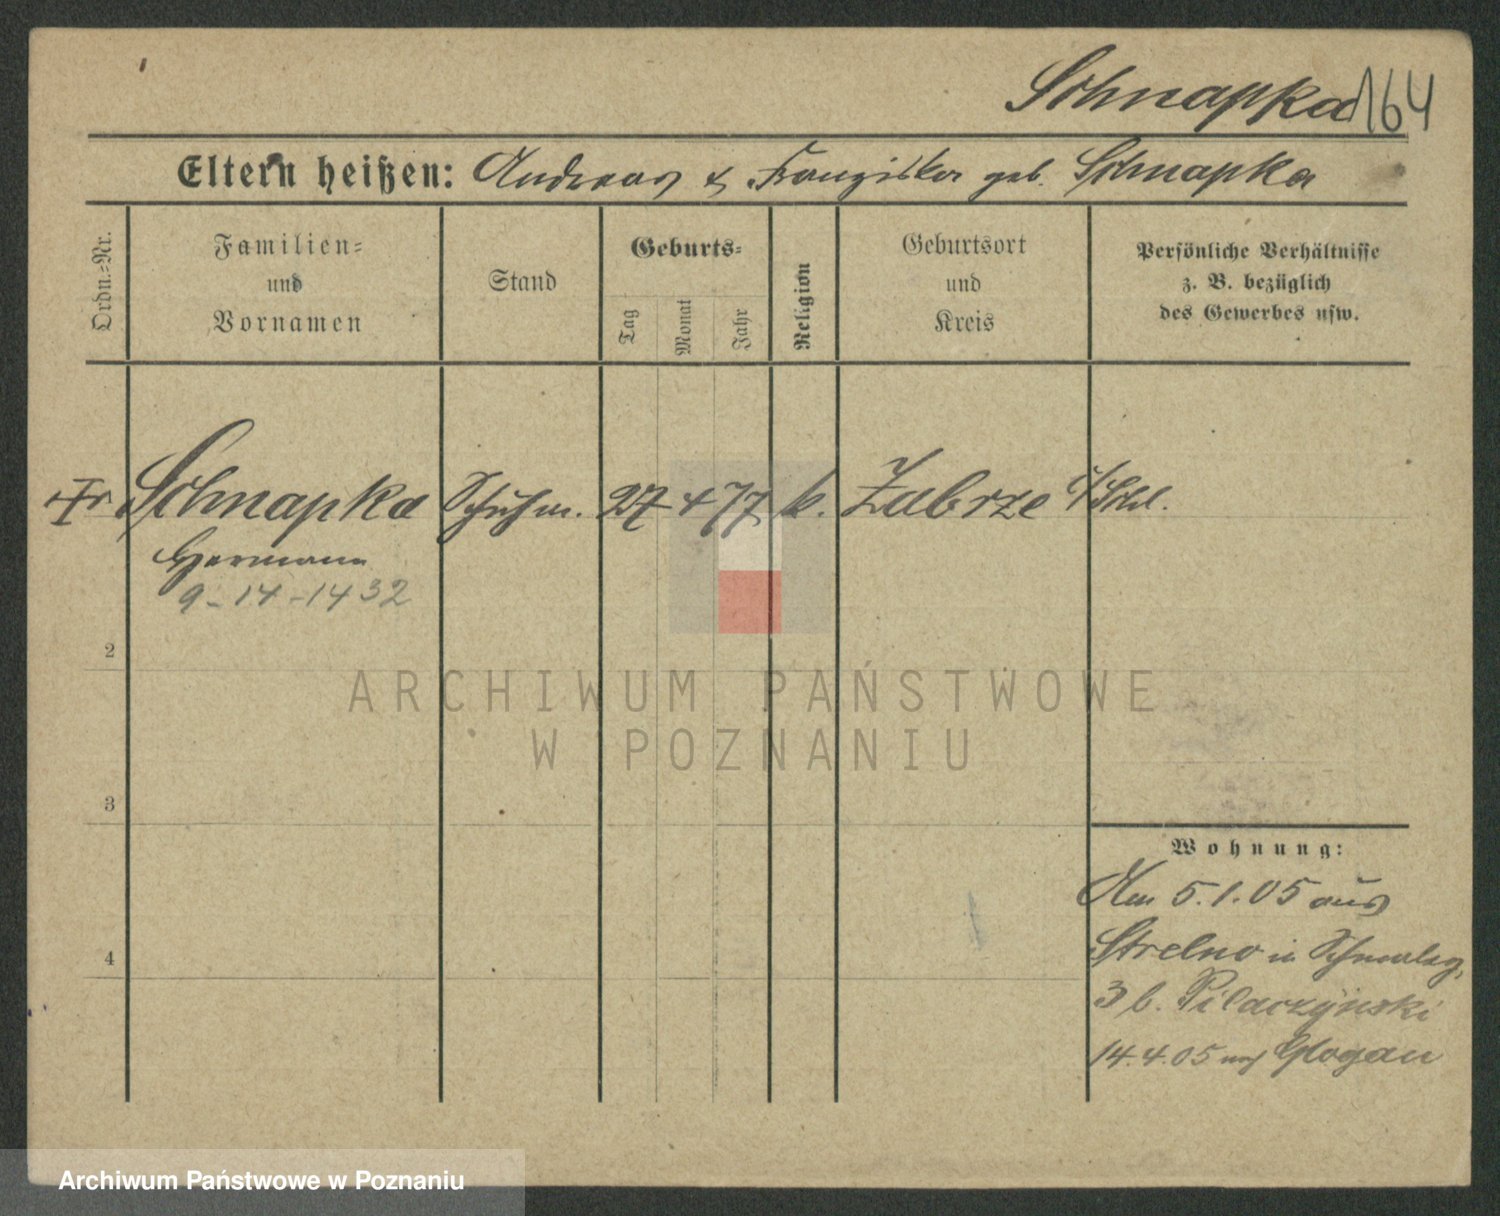 Schnapka 164
Eltern heißen: Andreas & Franziska geb. Schnapka
Ordn.-Nr.
Familien-
und
Vornamen
Stand
Geburts-
Tag
Monat
Jahr
Religion
Geburtsort
und
Kreis
Persönliche Verhältnisse
z. B. bezüglich
des Gewerbes usw.
Schnapka Schuhm. 27 4 77 k. Zabrze O/Schl.
Hermann
9-14-1432
2
3
4
Wohnung:
Am 5.1.05 aus
Strelno in
3 b. Pilaczynski
14.4.05 nach Glogau
ARCHIWUM PAŃSTWOWE
W POZNANIU
Archiwum Państwowe w Poznaniu